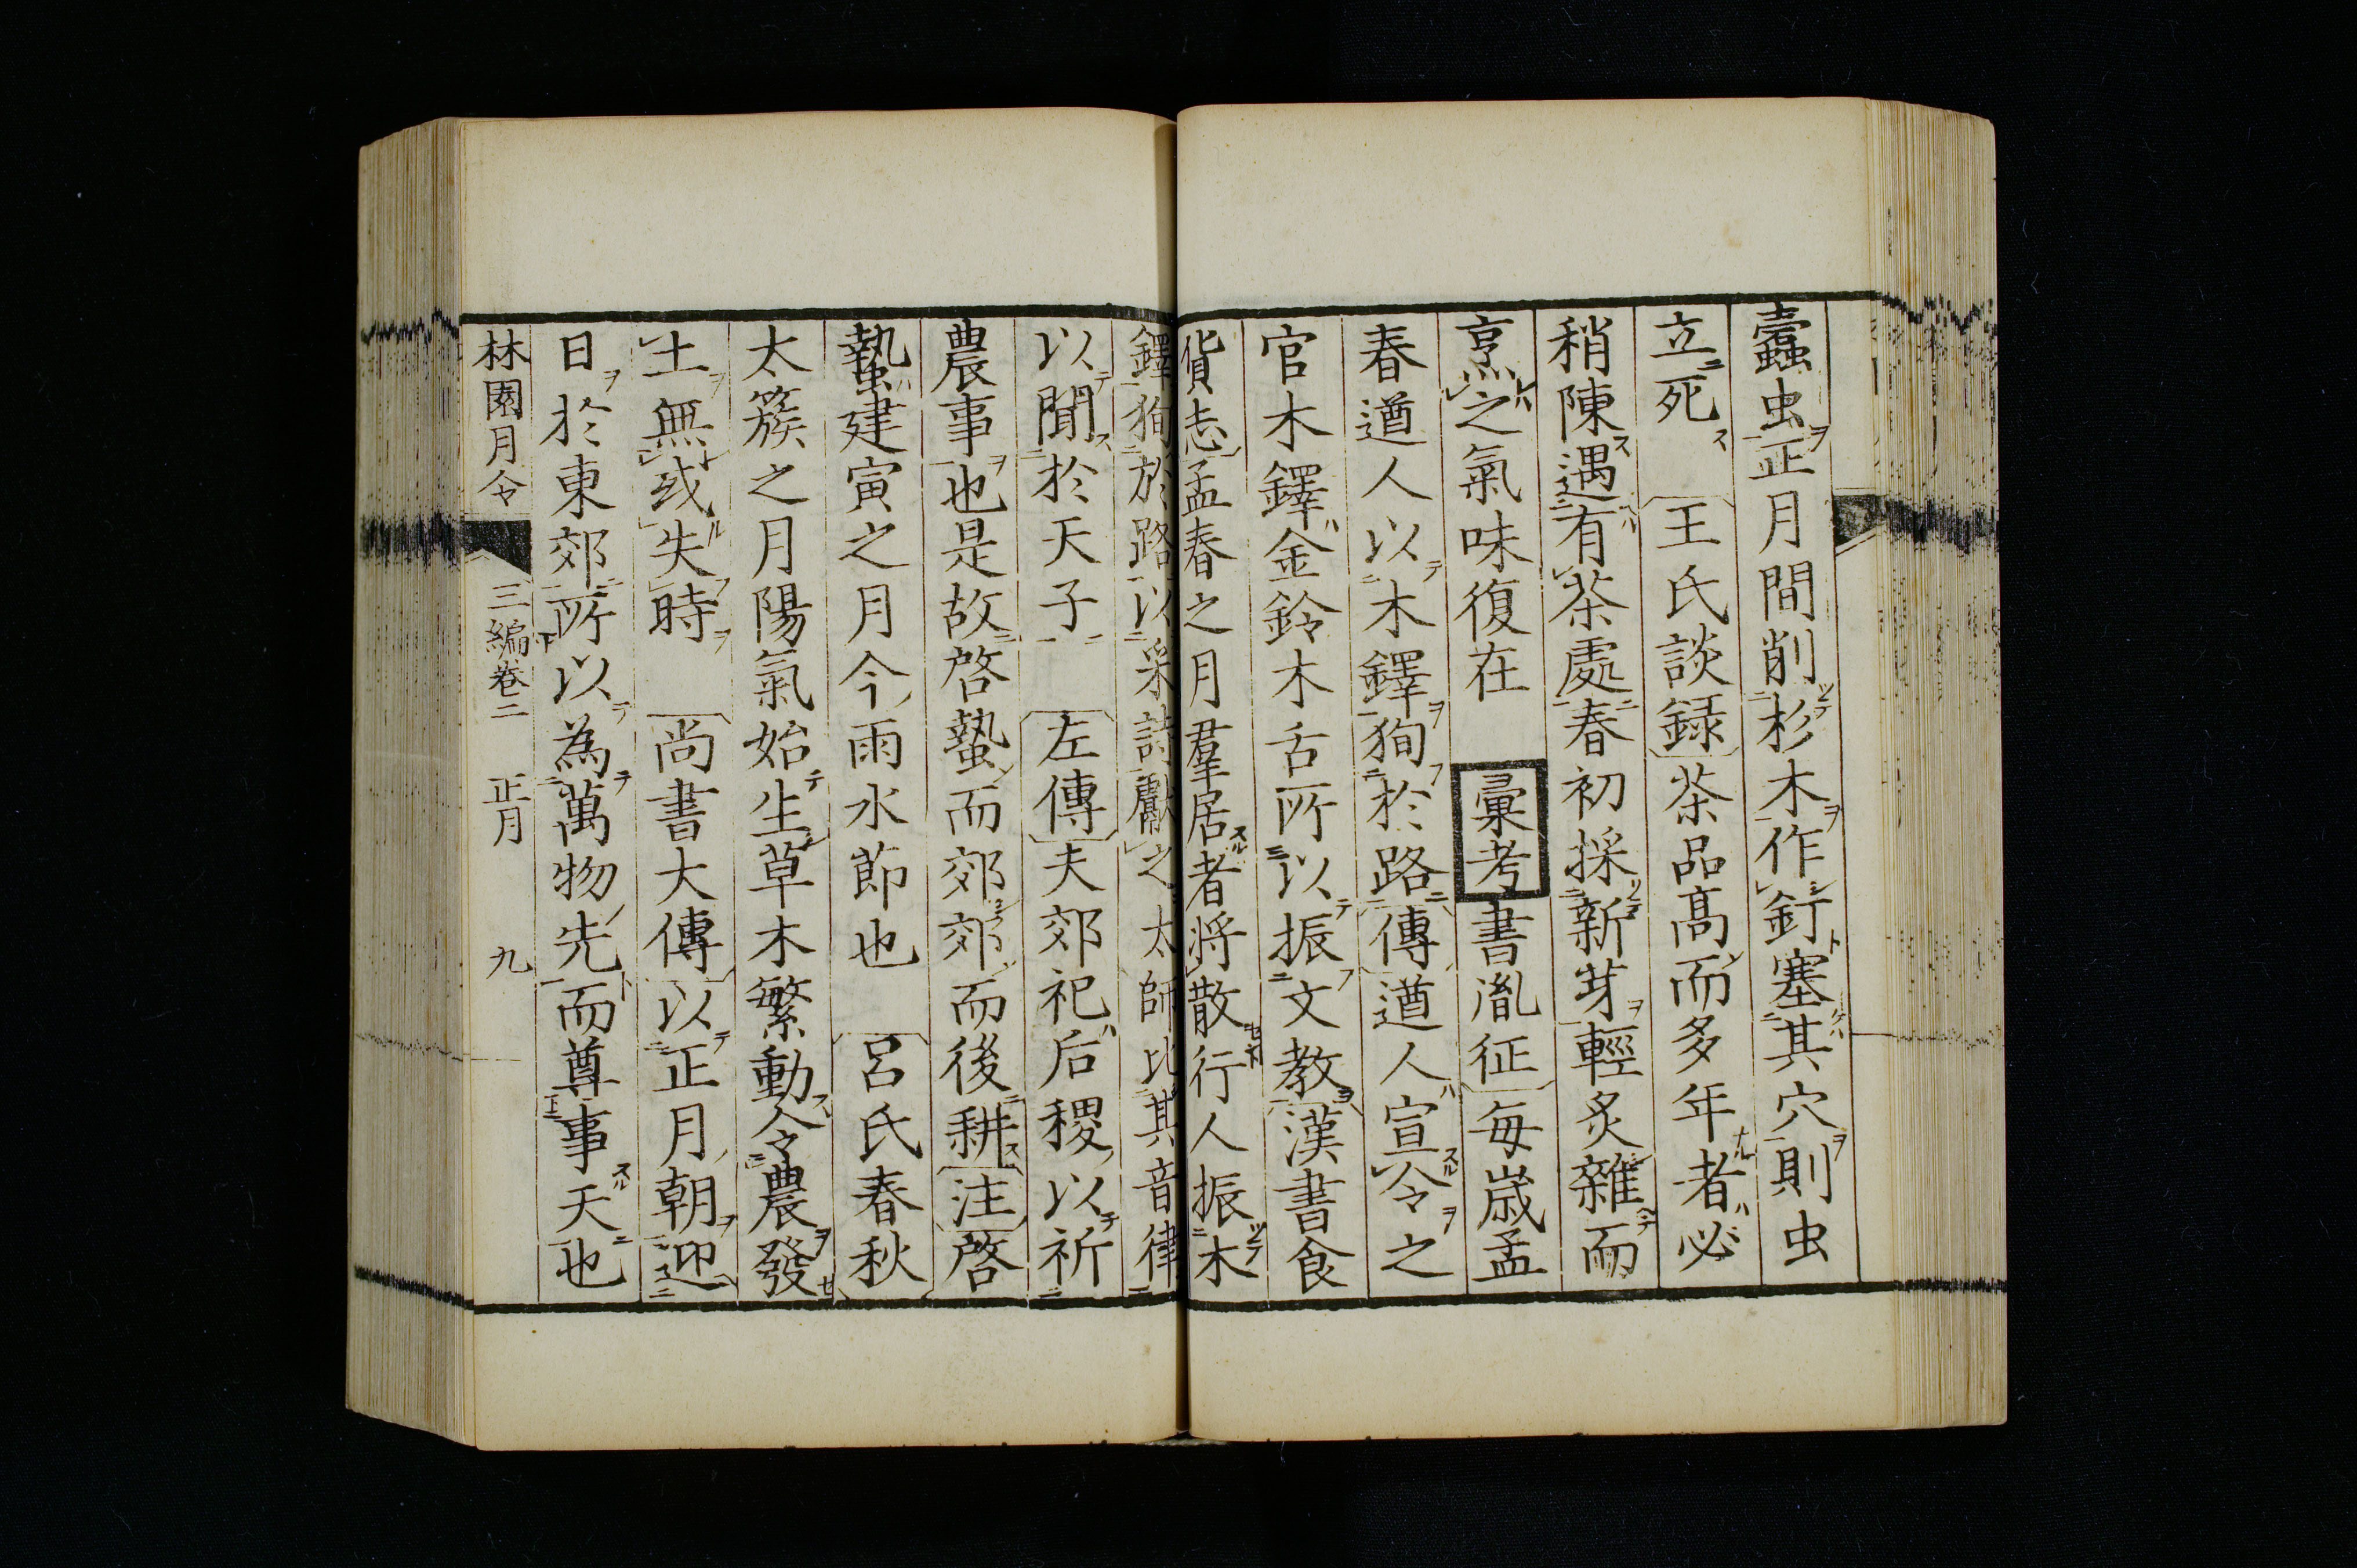 蠧虫正月間削杉木作釘塞其穴則虫
立死　〔王氏談録〕茶品高而多年者必
稍陳遇有茶處春初採新芽輕炙雜而
烹之氣味復在　彙考書胤征〕毎歳孟
春遒人以木鐸狥於路〔傳〕遒人宣令之
官木鐸金鈴木舌所以振文教〔漢書食
貨志〕孟春之月羣居者将散行人振木
鐸狥於路以采詩獻之太師比其音律
以聞於天子　〔左傳〕夫郊祀后稷以祈
農事也是故啓蟄而郊郊而後耕〔注〕啓
蟄建寅之月今雨水節也　〔呂氏春秋〕
太簇之月陽氣始生草木繁動令農發
土無或失時　〔尚書大傳〕以正月朝迎
日於東郊所以為萬物先而尊事天也
林園月令　三編卷二　正月　九